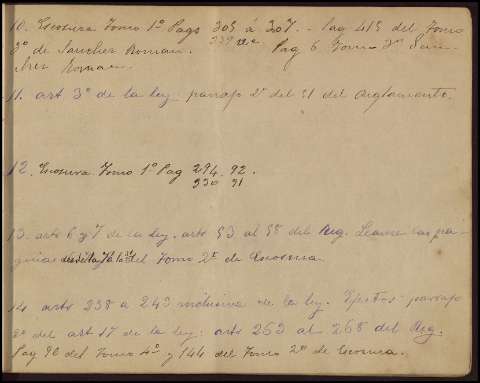 10. Escosura Tomo 1º Pags 305 á 307. - Pag 415 del Tomo
339
3º de Sanchez Roman. Pag 6 Tomo 2º San-
chez Roman.
11. art 3º de la ley: parrafo 2º del 51 del Reglamento.
12. Escosura Tomo 1º Pag 294. 92.
330 91
13. arts 6 y 7 de la ley. arts 53 al 58 del Reg. Leanse las pa-
ginas del Tomo 2º de Escosura.
14. arts 238 a 243 inclusive de la ley. Efectos: parrafo
2º del art 17 de la ley: arts 253 al 268 del Reg.
Pag 92 del Tomo 4º y 144 del Tomo 2º de Escosura.